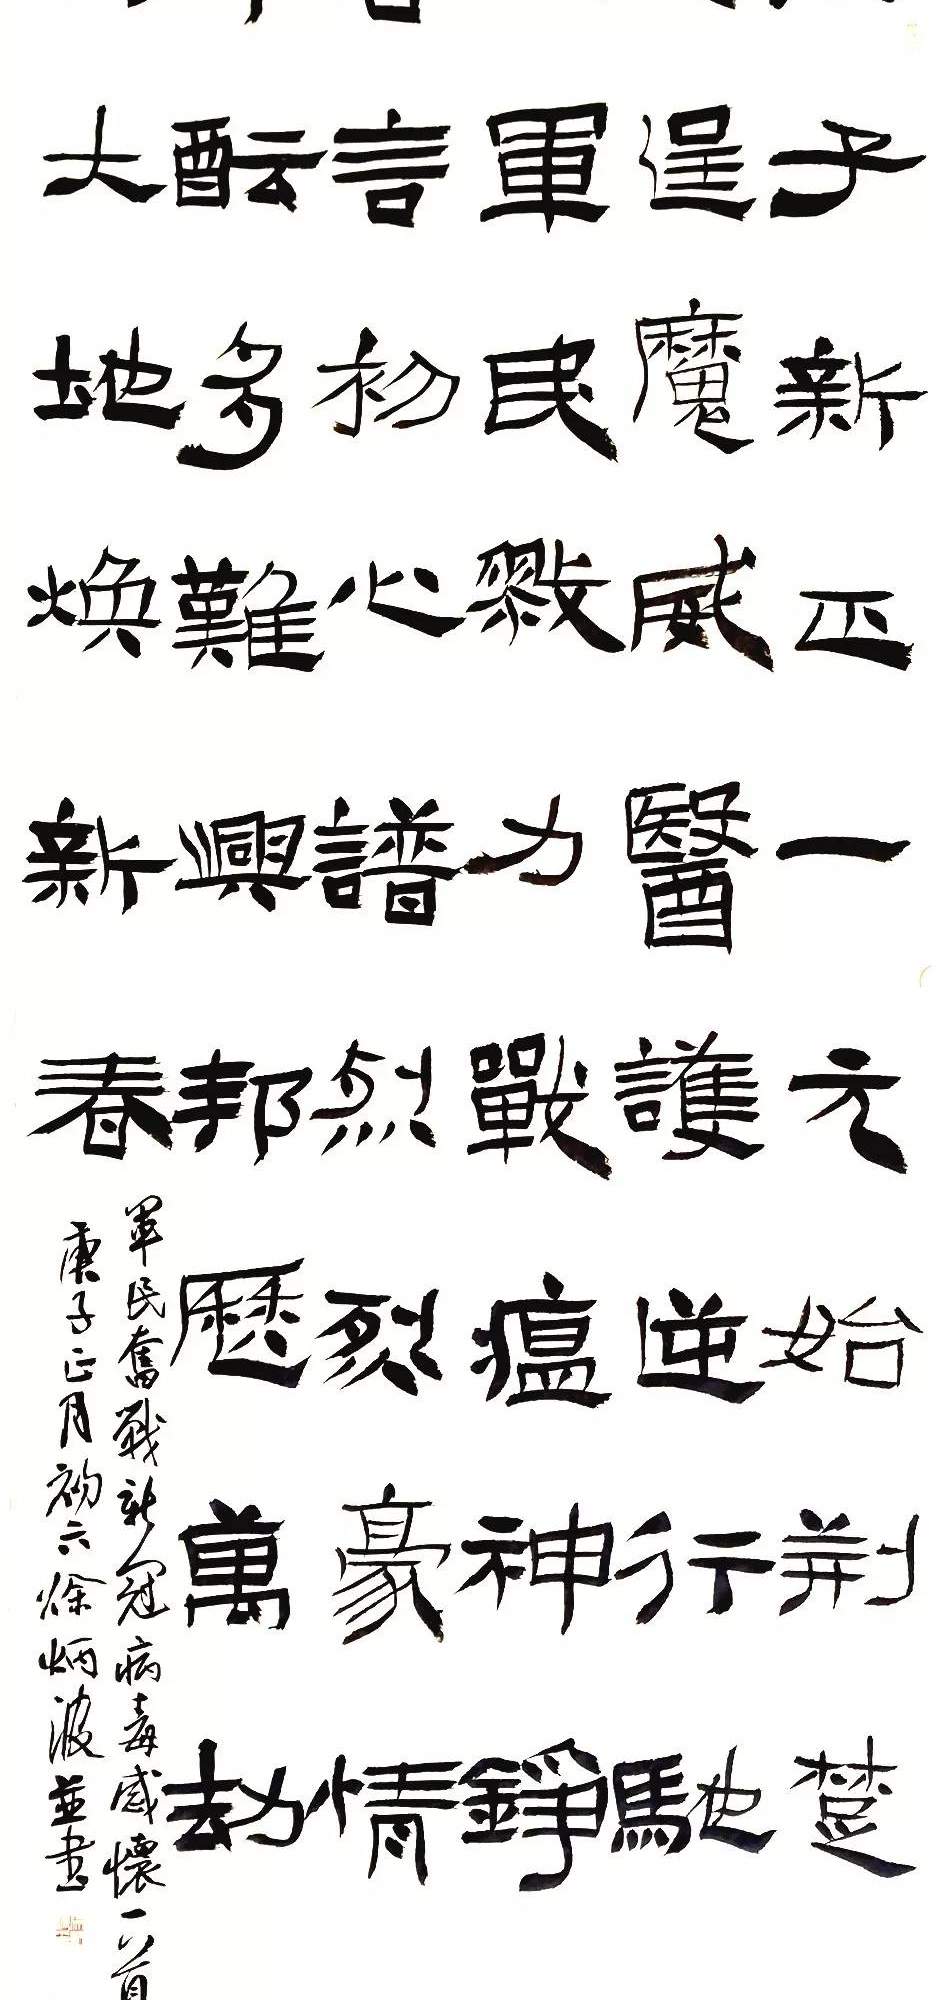 子新正一元始荆楚
逞魔威醫護逆行馳
軍民戮力戰瘟神錚
言初心譜烈烈豪情
酝多難興邦歷萬劫
大地焕新春
軍民奮戰新冠病毒感懷一首
庚子正月初六徐炳波並書